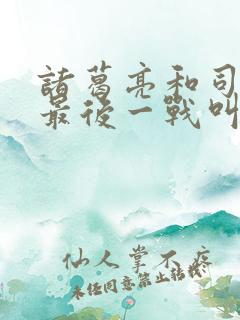 諸葛亮和司
最後一戰叫
仙人掌不疼
未經同意禁止轉載